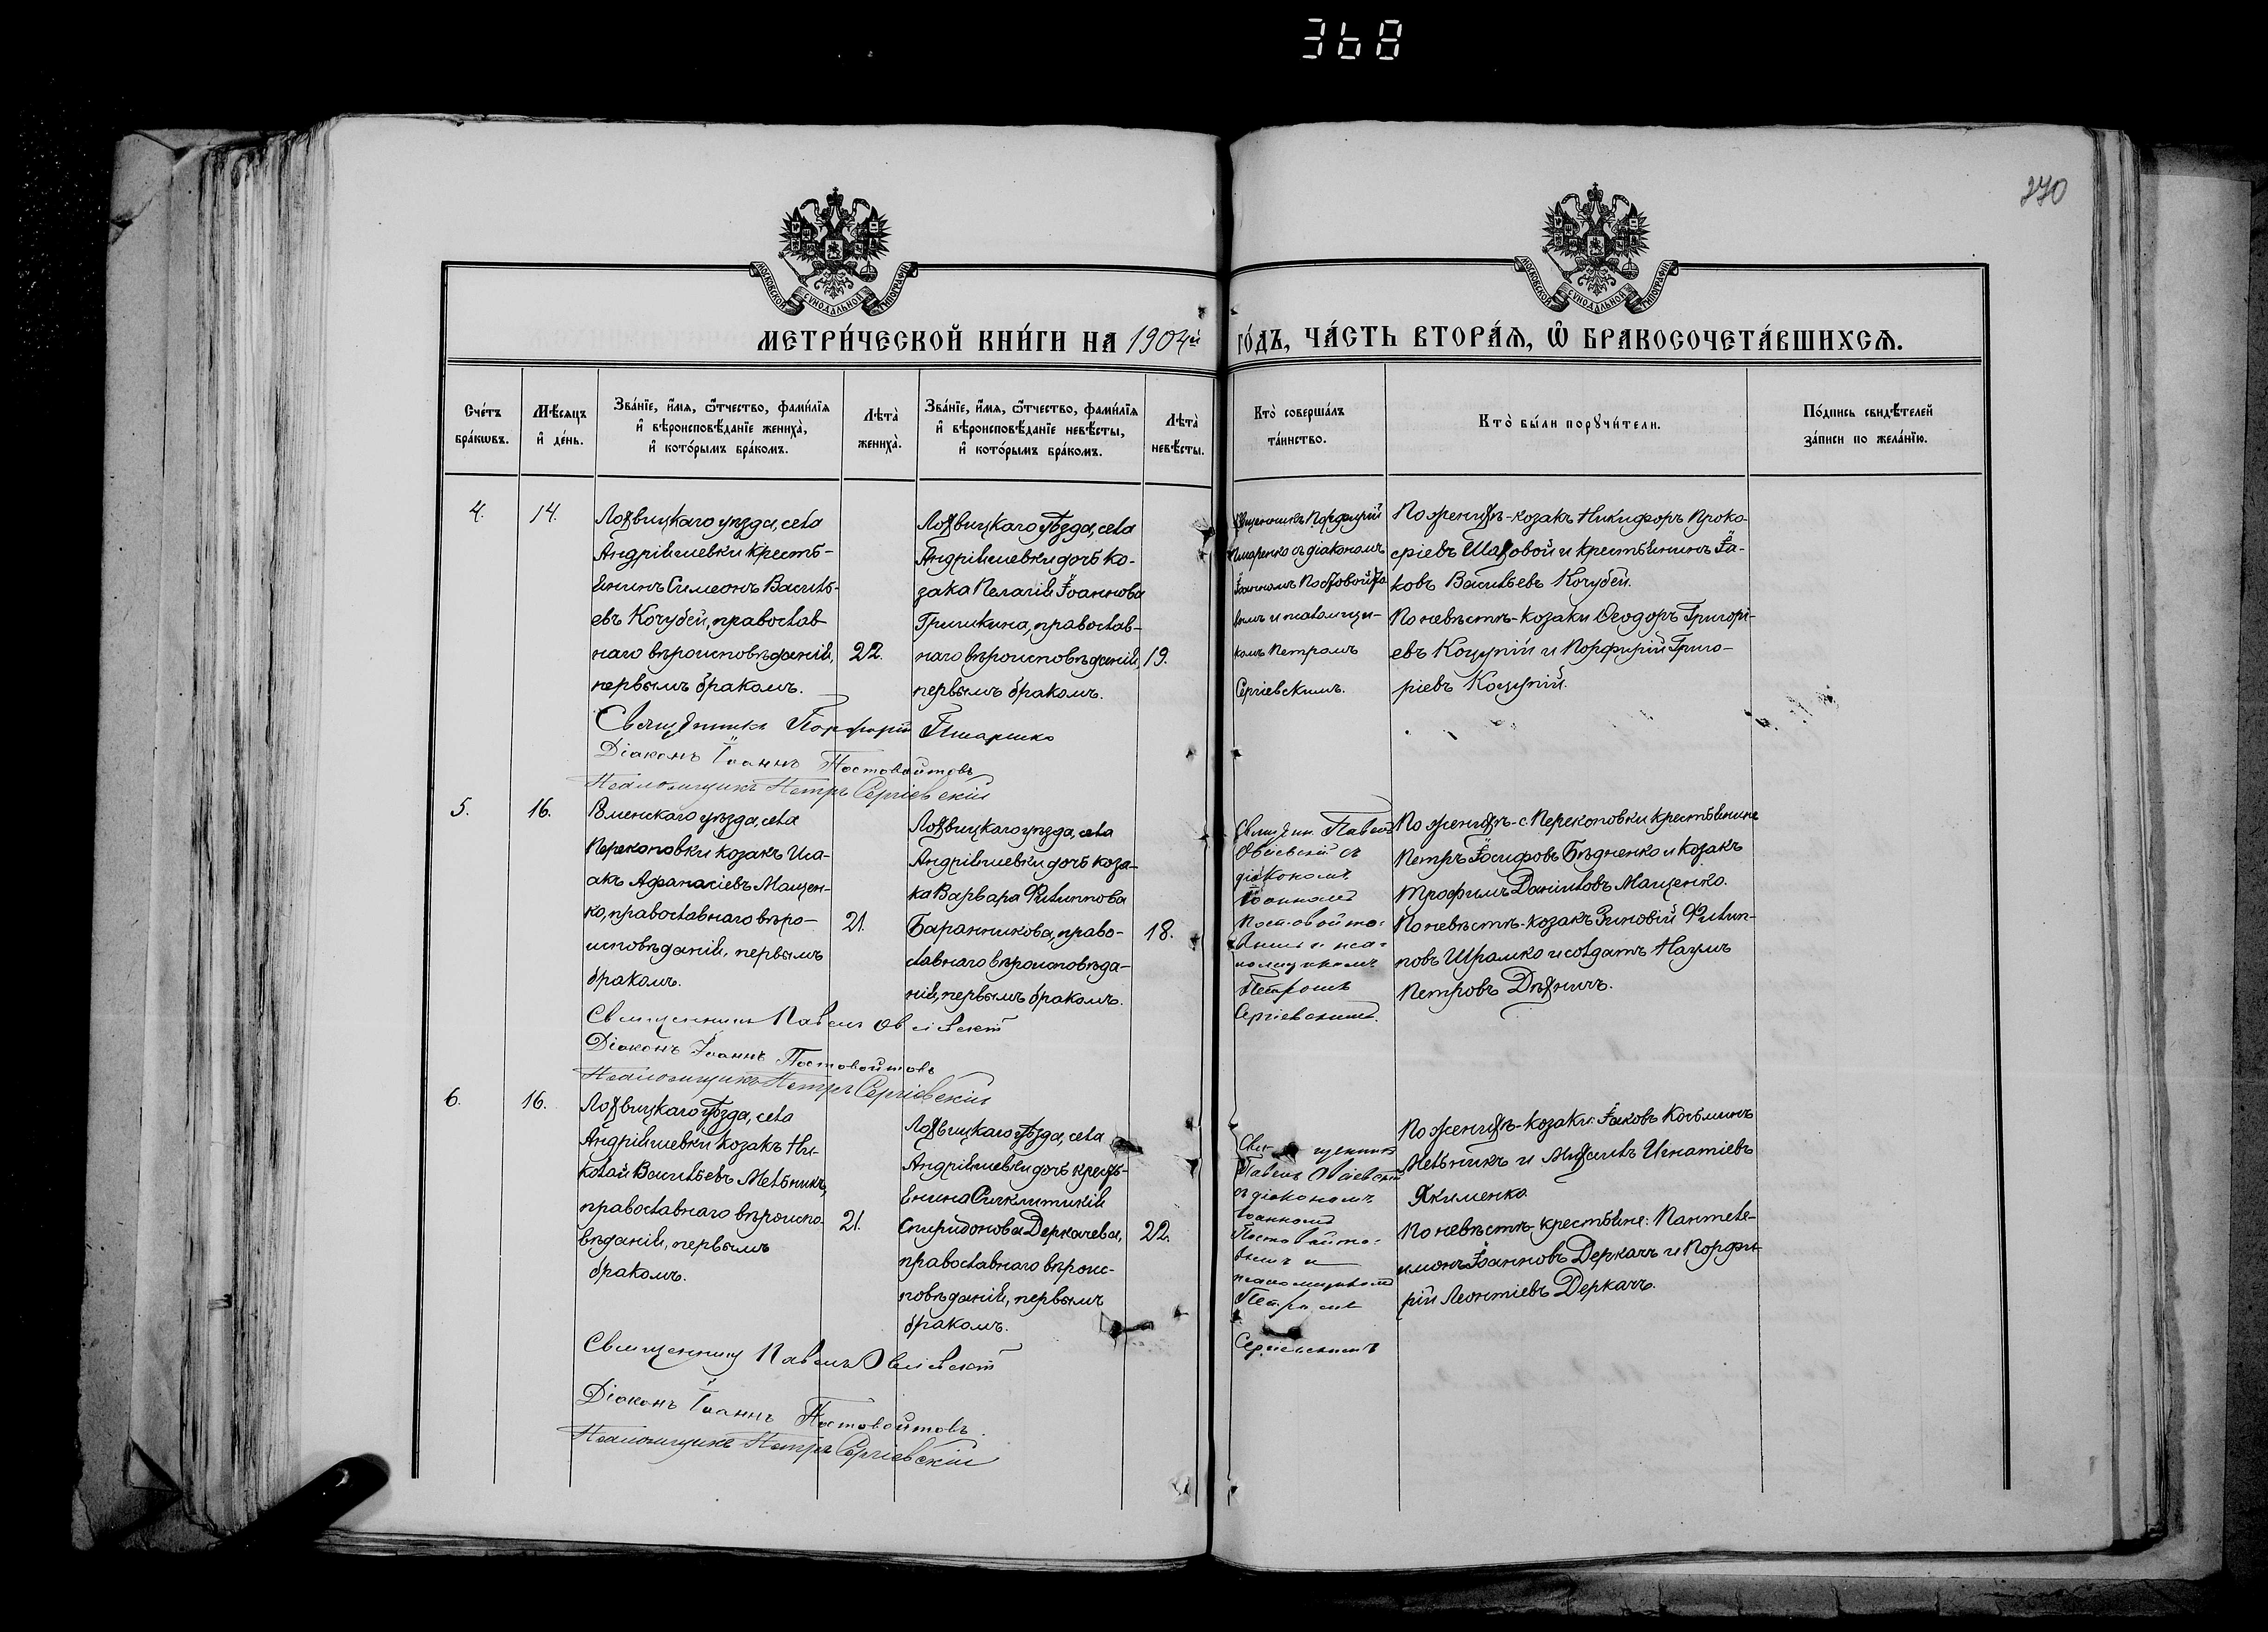 368
270
МОСКОВСКОЙ СѴНОДАЛЬНОЙ ТИПОГРАФІИ
МОСКОВСКОЙ СѴНОДАЛЬНОЙ ТИПОГРАФІИ
МЕТРИ́ЧЕСКОЙ КНИ́ГИ НА 1904й ГО́ДЪ, ЧА́СТЬ ВТОРА́Ѧ, Ѽ БРАКОСОЧЕТА́ВШИХСѦ.
Сче́тъ
бра́кѡвъ.
Мѣ́сяцъ
и҆ де́нь.
Зва́нїе, и҆́мя, ѻ҆́тчество, фами́лїя
и҆ вѣроисповѣ́данїе жениха̀,
и҆ кото́рымъ бра́комъ.
Лѣта̀
жениха̀.
Зва́нїе, и҆́мя, ѻ҆́тчество, фами́лїя
и҆ вѣроисповѣ́данїе невѣ́сты,
и҆ кото́рымъ бра́комъ.
Лѣта̀
невѣ́сты.
Кто̀ соверша́лъ
та́инство.
Кто̀ бы́ли порꙋчи́тели.
По́дпись свидѣ́телей
за́писи по жела́нїю.
4.
14.
Лохвицкаго уѣзда, села
Андріяшевки кресть-
янинъ Симеонъ Василь-
евъ Кочубей, православ-
наго вѣроисповѣданія,
первымъ бракомъ.
22.
Лохвицкаго уѣзда, села
Андріяшевки дочь ко-
зака Пелагія Іоаннова
Гришкина, православ-
наго вѣроисповѣданія,
первымъ бракомъ.
19.
Священникъ Порфирій
Пшаренко съ діакономъ
Іоанномъ Постовойто
вымъ и псаломщи-
комъ Петромъ
Сергіевскимъ.
По женихѣ-козакъ Никифоръ Проко-
фіевъ Шаховой и крестьянинъ Іа-
ковъ Васильевъ Кочубей.
По невѣстѣ-козаки Ѳеодоръ Григорі-
евъ Коцупій и Порфирій Григо-
ріевъ Коцупій.
Священникъ Порфирій
Діаконъ Іоаннъ Постовойтовъ
Псаломщикъ Петръ Сергіевскій
5.
16.
Роменскаго уѣзда, села
Перекоповки козакъ Иса-
акъ Афанасіевъ Мащен-
ко, православнаго вѣро-
исповѣданія, первымъ
бракомъ.
21.
Лохвицкаго уѣзда, села
Андріяшевки дочь коза-
ка Варвара Филиппова
Баранникова, право-
славнаго вѣроисповѣда-
нія, первымъ бракомъ.
18.
Священ. Павелъ
Овсіевскій съ
діакономъ
Іоанномъ
Постовойто-
вымъ и пса-
ломщикомъ
Петромъ
Сергіевскимъ.
По женихѣ-с. Перекоповки крестьянине
Петръ Іосифовъ Бѣдненко и козакъ
Трофимъ Даніиловъ Мащенко.
По невѣстѣ-козакъ Зиновій Филип-
повъ Шрамко и солдатъ Наумъ
Петровъ Дѣхничъ.
Священникъ Павелъ Овсіевскій
Діаконъ Іоаннъ Постовойтовъ
Псаломщикъ Петръ Сергіевскій
6.
16.
Лохвицкаго уѣзда, села
Андріяшевки козакъ Ни-
колай Васильевъ Мельникъ,
православнаго вѣроиспо-
вѣданія, первымъ
бракомъ.
21.
Лохвицкаго уѣзда, села
Андріяшевки дочь кресть-
янина Сигклитикія
Спиридонова Деркачева,
православнаго вѣроис-
повѣданія, первымъ
бракомъ.
22.
Священник
Павелъ Овсіевскій
съ діакономъ
Іоанномъ
Постовойто-
вымъ и
псаломщикомъ
Петромъ
Сергіевскимъ
По женихѣ-козаки: Іаковъ Косьминъ
Мельникъ и Михаилъ Игнатіевъ
Якименко.
По невѣстѣ-крестьяне: Пантеле-
имонъ Іоанновъ Деркачъ и Порфи-
рій Леонтіевъ Деркачъ.
Священникъ Павелъ Овсіевскій
Діаконъ Іоаннъ Постовойтовъ.
Псаломщикъ Петръ Сергіевскій